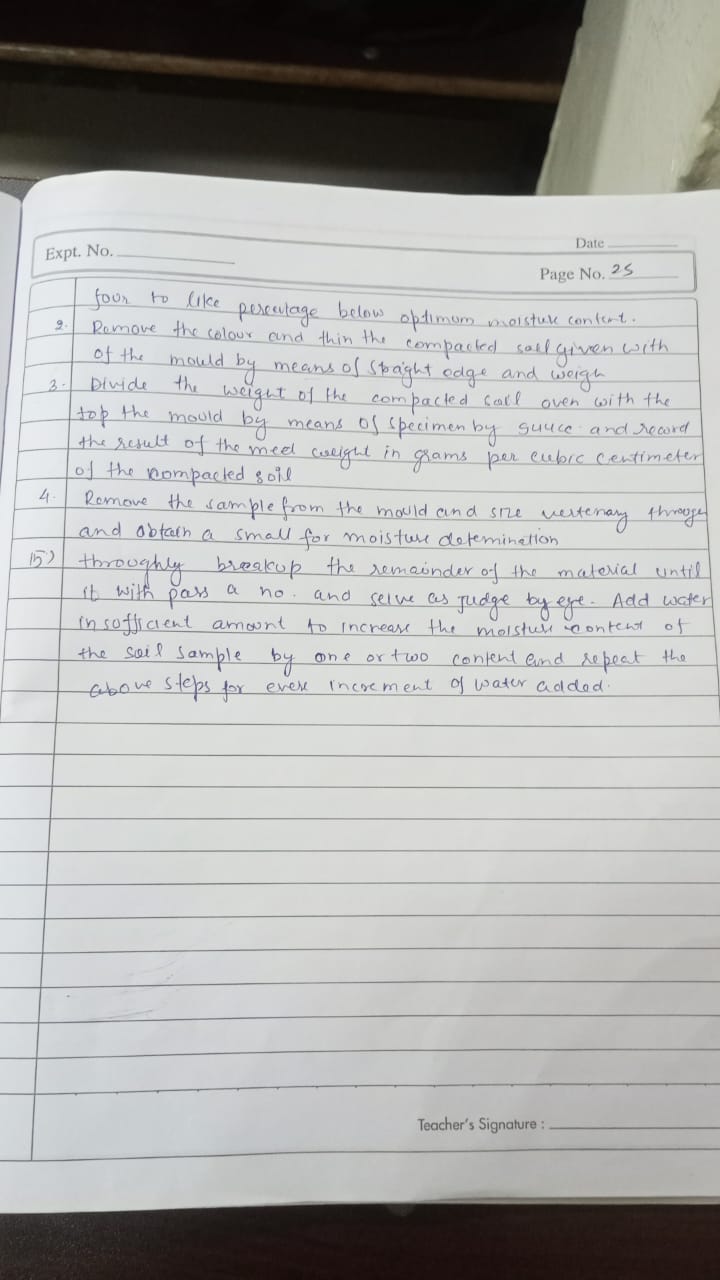 Expt. No.
Date
Page No. 25
four to like percentage below optimum moisture content.
2. Remove the colour and thin the compacted soil given with
of the mould by means of straight edge and weigh
3. Divide the weight of the compacted soil oven with the
top the mould by means of specimen by and record
the result of the weight in grams per cubic centimeter
of the compacted soil
4. Remove the sample from the mould and through
and obtain a small for moisture detemination
15) throughly breakup the remainder of the material until
it with pass a no. and seive as judge by eye. Add water
insofficient amount to increase the moisture content of
the soil sample by one or two content and repeat the
above steps for increment of water added.
Teacher's Signature :